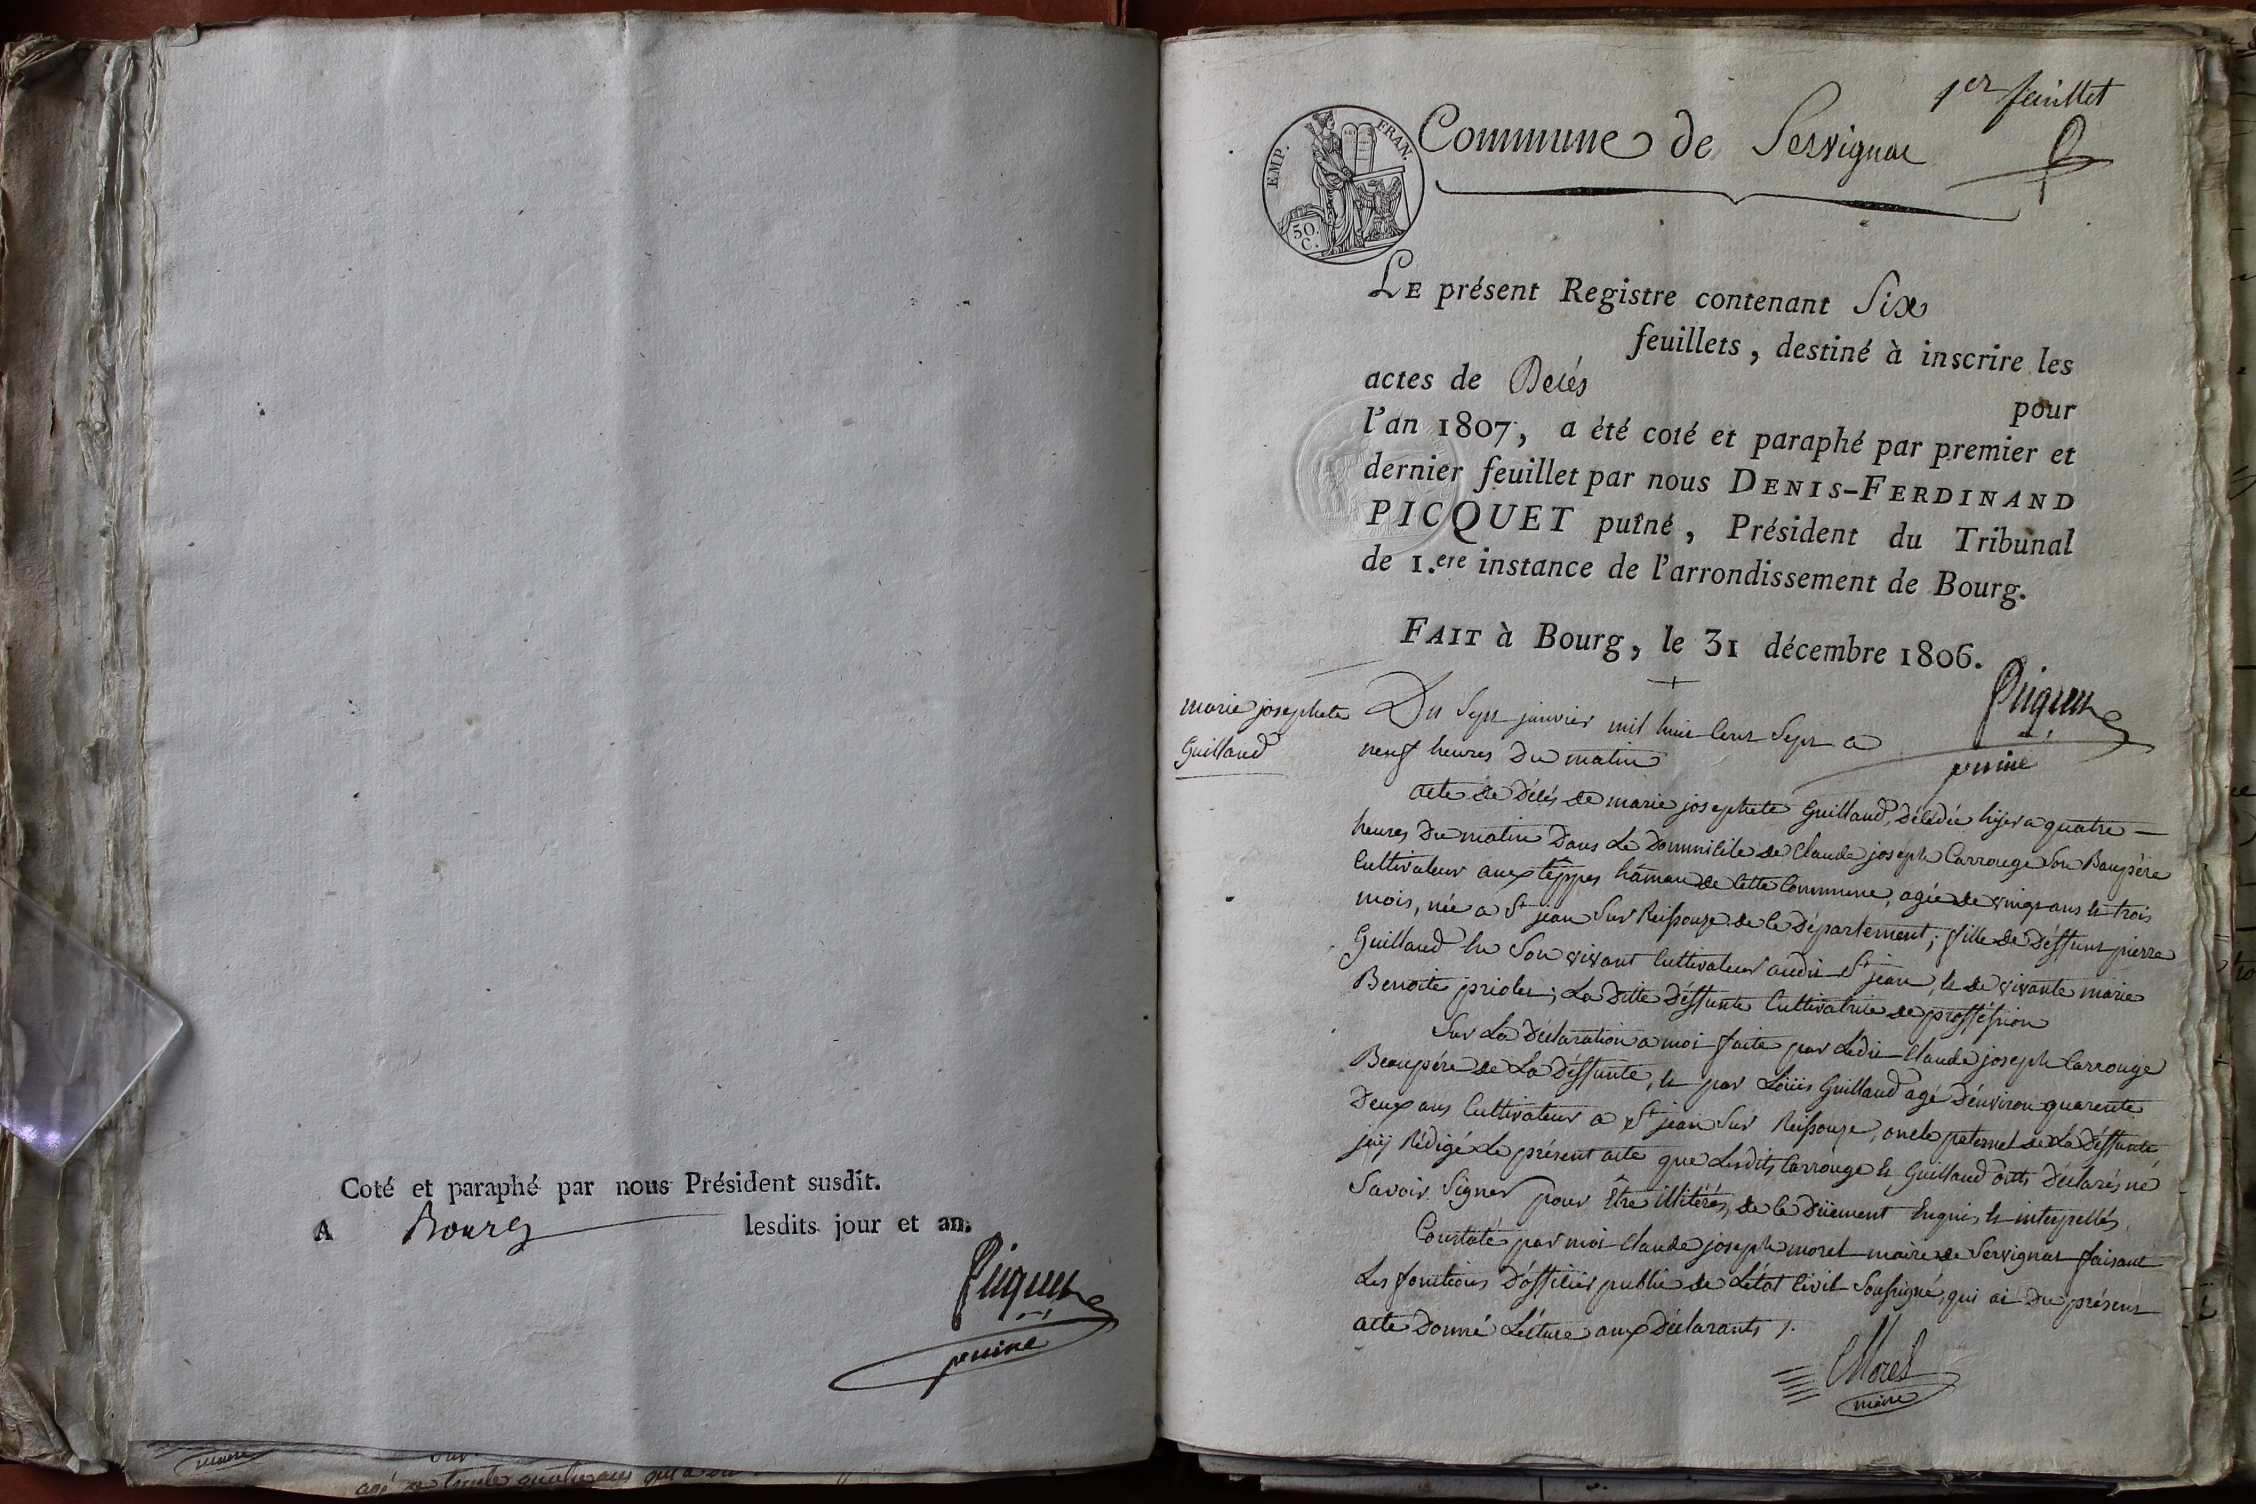 Coté et paraphé par nous Président susdit.
A Bourg lesdits jour et an.
Picquet
puiné
maire
1er feuillet
EMP. FRAN.
50.
C.
Commune de Servignat
LE présent Registre contenant Six
feuillets, destiné à inscrire les
actes de Decés
pour
l'an 1807, a été coté et paraphé par premier et
dernier feuillet par nous DENIS-FERDINAND
PICQUET puîné, Président du Tribunal
de 1.ere instance de l'arrondissement de Bourg.
FAIT à Bourg, le 31 décembre 1806.
Picquet
puiné
marie josephete
Guillaud
Du Sept janvier mil huit Cent Sept a
neuf heures Du matin
acte de Décés de marie josephete Guillaud, Décédée hijer a quatre
heures Du matin Dans Le Dommicile de Claude joseph Carrouge Son Baupére
Cultivateur aux têppes hâmau de Cette Commune, agée de vingt ans et trois
mois, née a St jean Sur Reissouze de Ce Département; fille de Déffunt pierre
Guillaud En Son vivant Cultivateur audit St jean, et de vivante marie
Benoite priolet; La Ditte Déffunte Cultivatrice de proffession
Sur La Déclaration a moi faite par Ledit Claude joseph Carrouge
Beaupére de La Déffunte, et par Loüis Guillaud agé D'énviron quarente
Deux ans Cultivateur a St jean Sur Reissouze, oncle paternel de La Déffunte,
j'aÿ Rédigé Le présent acte que Lesdits Carrouge et Guillaud ont Déclarés ne
Savoir Signer pour Être illitérés, de Ce Düement Enquis et interpellés.
Constaté par moi Claude joseph morel maire de Servignat faisant
Les fonctions D'officier public de L'état Civil Soussigné, qui ai Du présent
acte Donné Lécture aux Déclarants ./.
Morel
maire